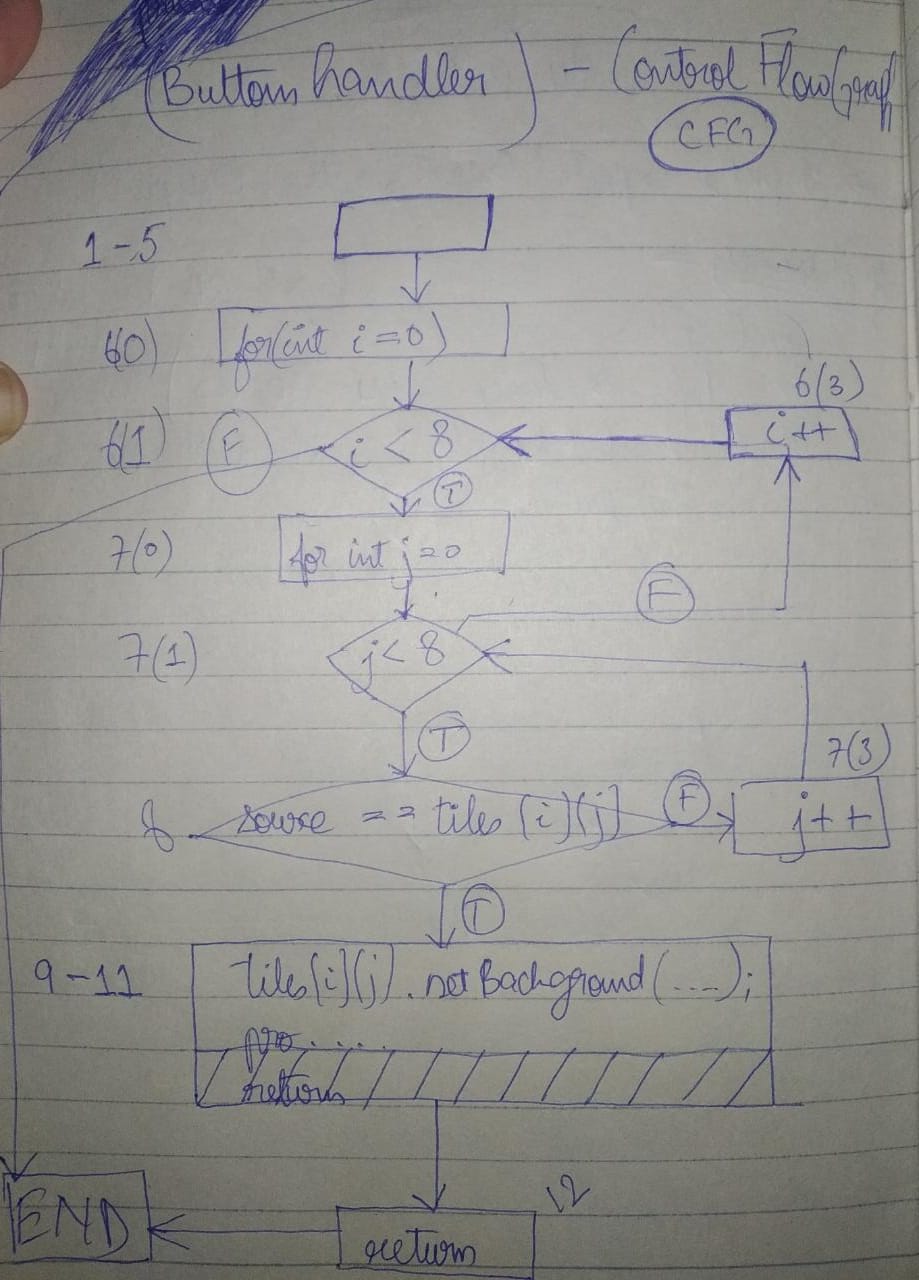 (Button handler) - Control Flow Graph
CFG
1-5
6(0) for(int i=0)
6(3)
6(1) F i < 8 i++
T
7(0) for int j=0
F
7(1) j< 8
T
7(3)
8 source == tiles [i][j] F j++
T
9-11 tiles[i][j].setBackground(....);
pro.....
return
12
END return